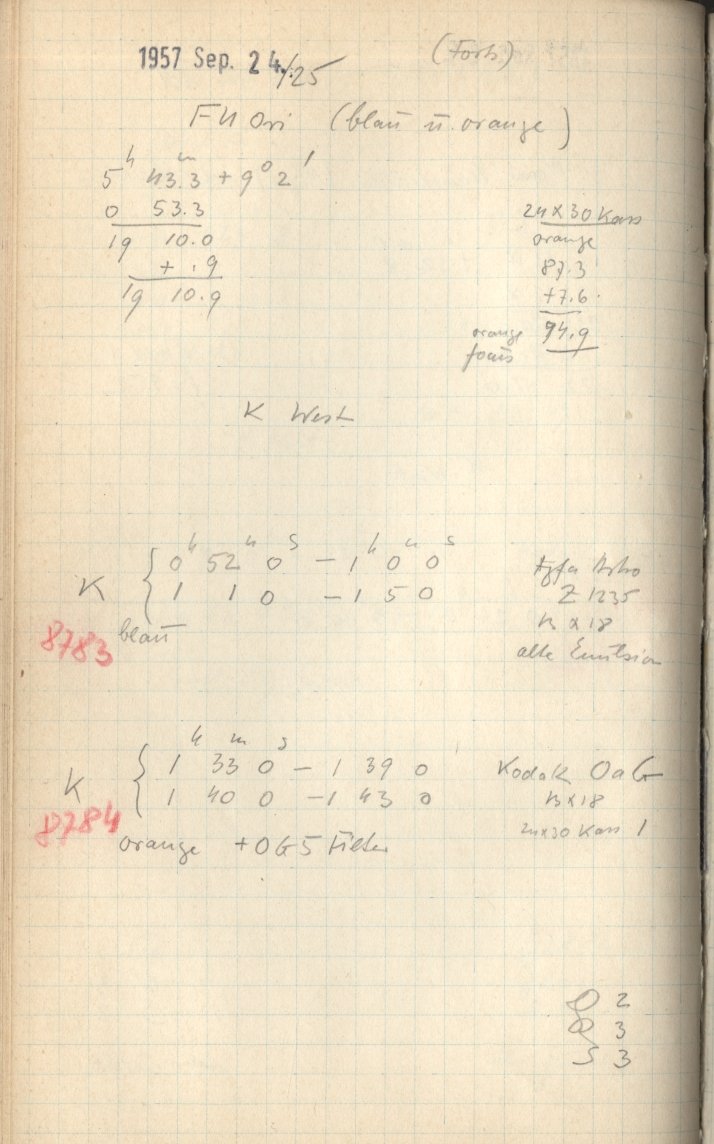 1957 Sep. 24./25 (Forts)
FU Ori (blau u. orange)
5h 43.3m + 9° 2'
0 53.3
19 10.0
+ .9
19 10.9
24 x 30 Kass
orange
87.3
+7.6
94.9
orange
focus
K West
K { 0h 52m 0s – 1h 0m 0s
1 1 0 – 1 5 0
8783 blau
Agfa Astro
Z 1235
13 x 18
alte Emulsion
K { 1h 33m 0s – 1 39 0
1 40 0 – 1 43 0
8784
orange + OG5 Filter
Kodak OaG
13 x 18
24x30 Kass 1
2
3
S 3